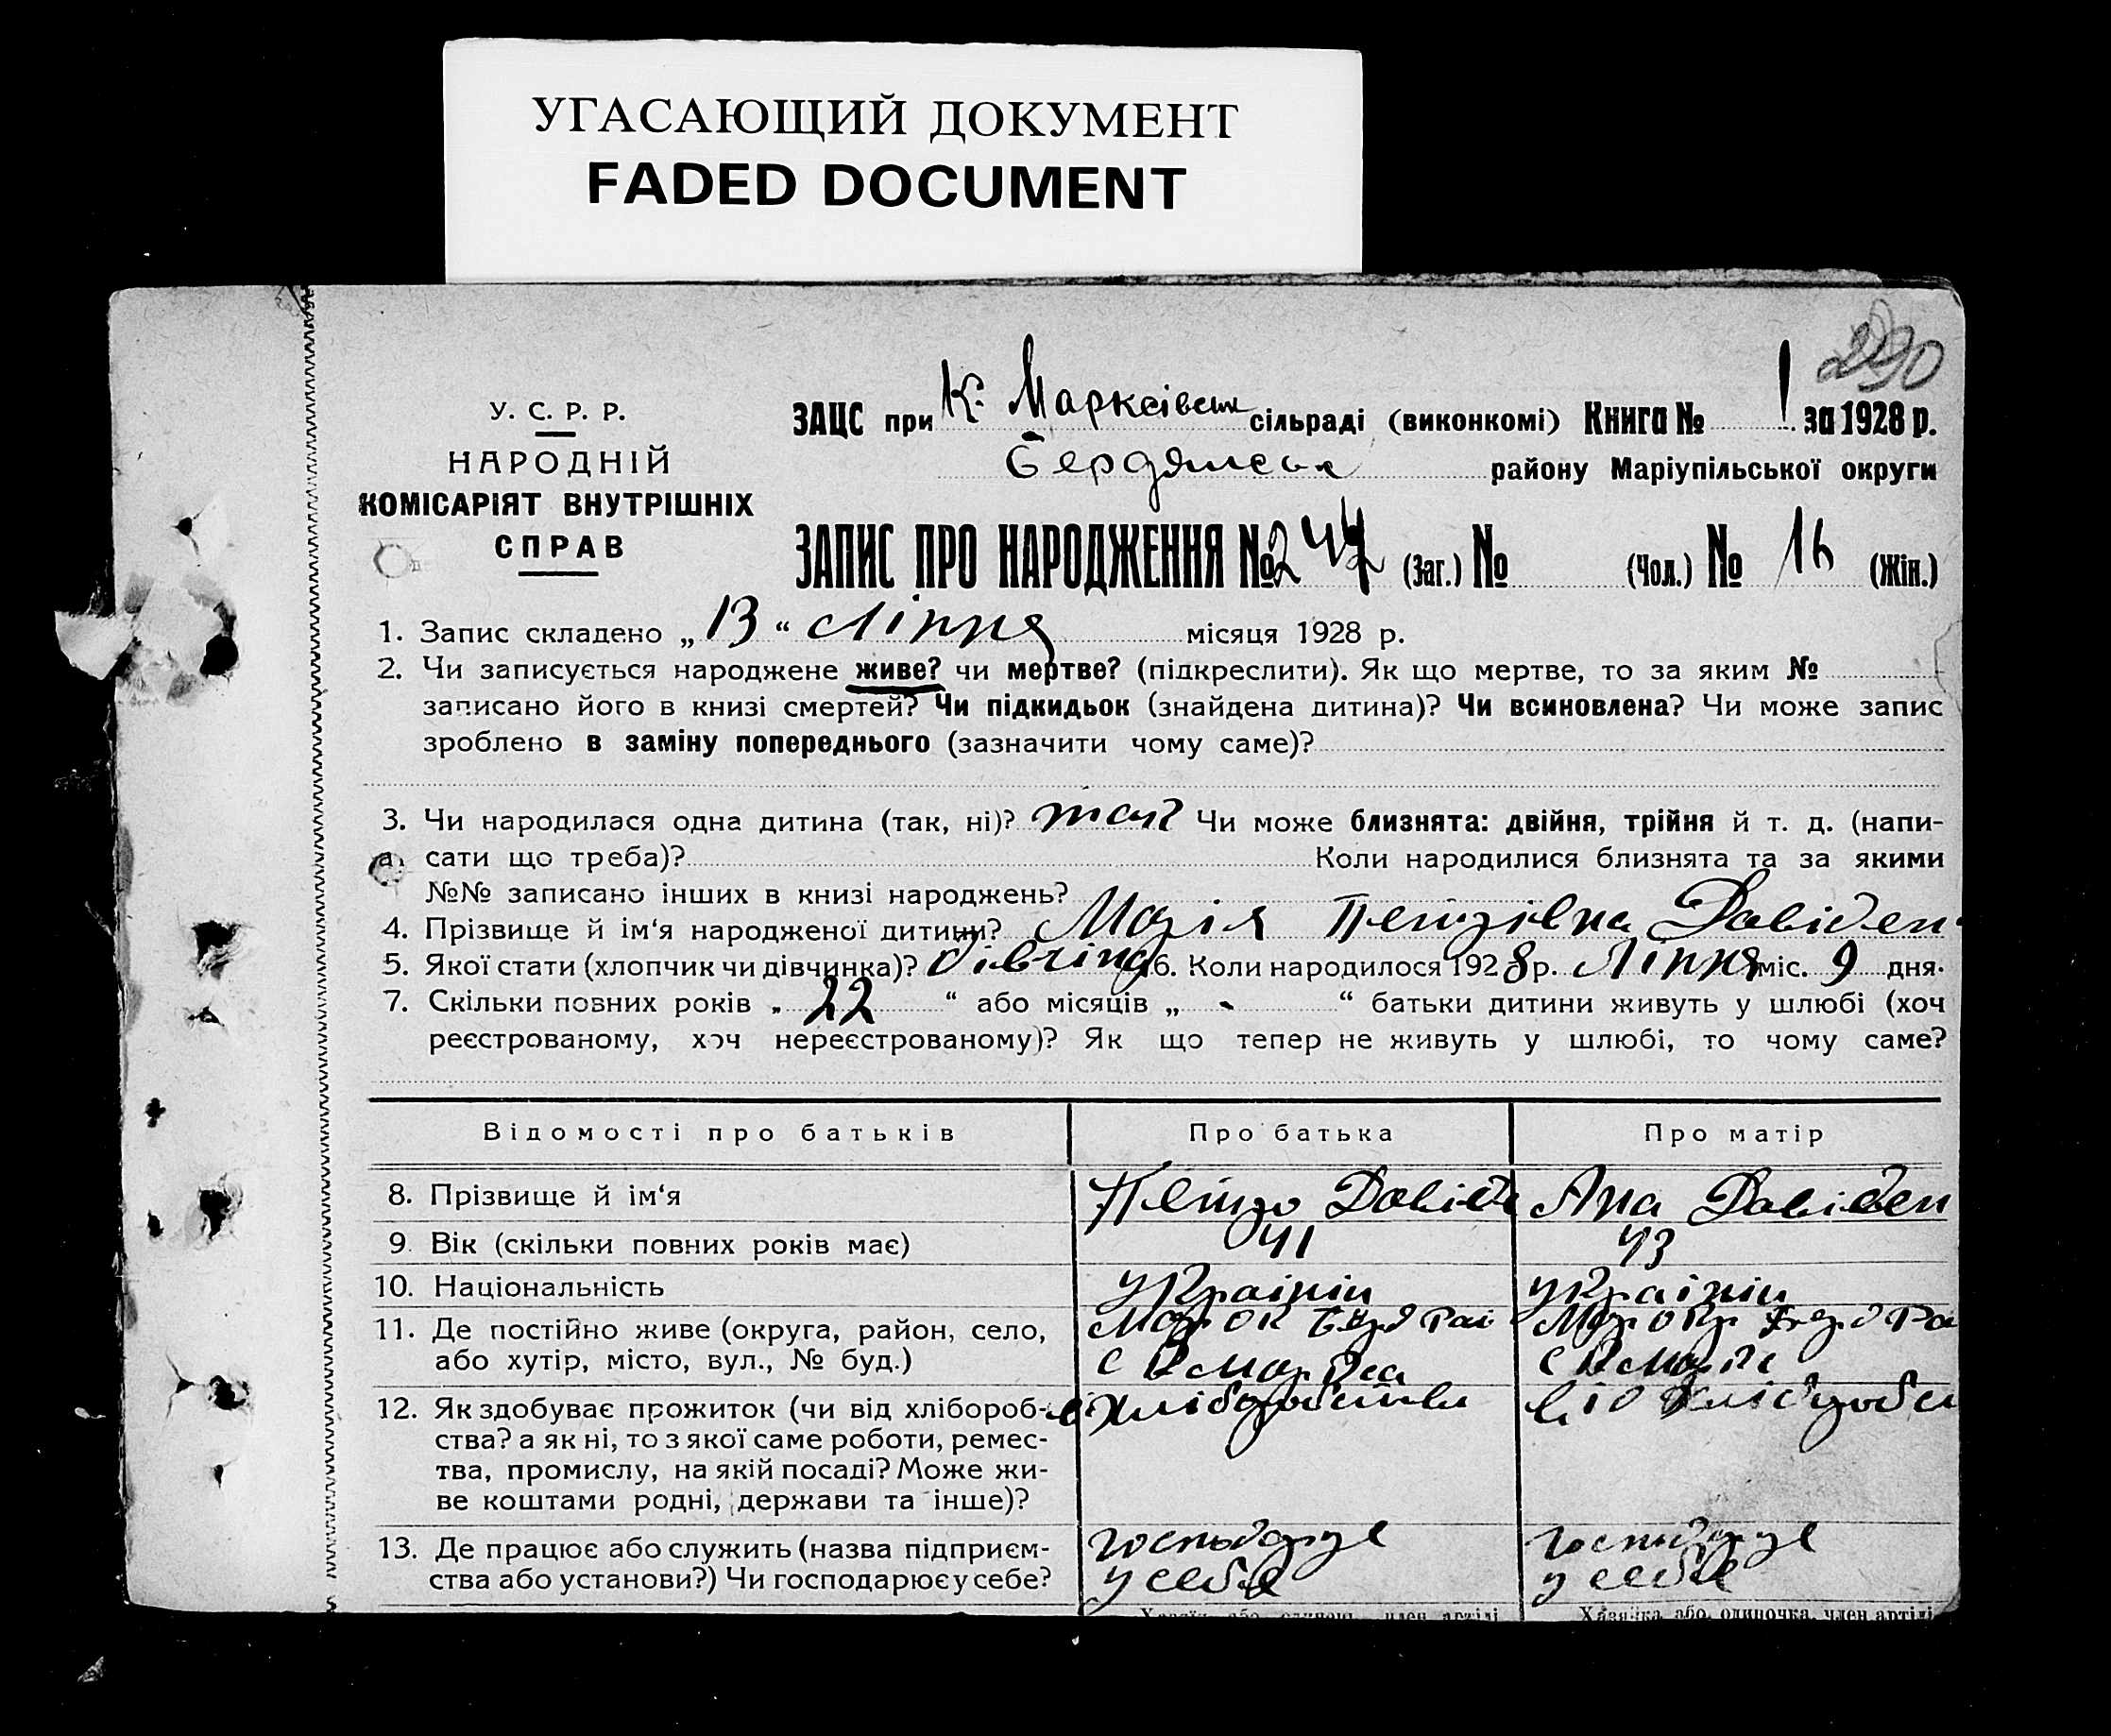 УГАСАЮЩИЙ ДОКУМЕНТ
FADED DOCUMENT
290
У. С. Р. Р.
НАРОДНІЙ
КОМІСАРІЯТ ВНУТРІШНІХ
СПРАВ
ЗАЦС при К. Марксівськ сільраді (виконкомі) Книга № 1 за 1928 р.
Бердянськ району Маріупільської округи
ЗАПИС ПРО НАРОДЖЕННЯ № (Заг.) № (Чол.) № 16 (Жін.)
1. Запис складено „ 13 “ Ліпня місяця 1928 р.
2. Чи записується народжене живе? чи мертве? (підкреслити). Як що мертве, то за яким №
записано його в книзі смертей? Чи підкидьок (знайдена дитина)? Чи всиновлена? Чи може запис
зроблено в заміну попереднього (зазначити чому саме)?
3. Чи народилася одна дитина (так, ні)? так Чи може близнята: двійня, трійня й т. д. (напи-
сати що треба)? Коли народилися близнята та за якими
№№ записано інших в книзі народжень?
4. Прізвище й ім‘я народженої дитини? Марія Петрівна Давіден
5. Якої стати (хлопчик чи дівчинка)? дівчина 6. Коли народилося 1928 р. Ліпня міс. 9 дня.
7. Скільки повних років „ 22 “ або місяців „ - “ батьки дитини живуть у шлюбі (хоч
реєстрованому, хоч нереєстрованому)? Як що тепер не живуть у шлюбі, то чому саме?
Відомості про батьків Про батька Про матір
8. Прізвище й ім‘я Петро Давіде Ана Давіден
9. Вік (скільки повних років має) 41 43
10. Національність Украінін Украінін
11. Де постійно живе (округа, район, село, Мар ок Берд Раі Мар окр Берд Ра
або хутір, місто, вул., № буд.) с К Маркса с К Маркс
12. Як здобуває прожиток (чи від хлібороб- Хліборобства від Хліборобс
ства? а як ні, то з якої саме роботи, ремес-
тва, промислу, на якій посаді? Може жи-
ве коштами родні, держави та інше)?
13. Де працює або служить (назва підприєм- господарує господарує
ства або установи?) Чи господарює у себе? у себе у себе
Хазяїн або одинок, член артілі Хазяйка або одиночка, член артілі